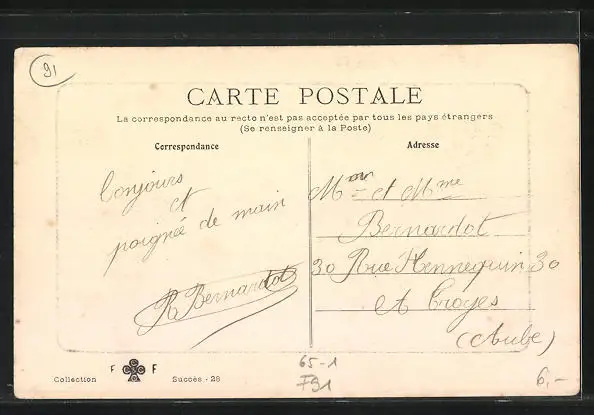 91
CARTE POSTALE
La correspondance au recto n'est pas acceptée par tous les pays étrangers
(Se renseigner à la Poste)
Correspondance
Bonjours
et
poignée de main
R Bernardot
Adresse
Mon et Mme
Bernardot
30 Rue Hennequin 30
A Troyes
(Aube)
F F
Collection
Succès - 28
65-1
F91
6,-